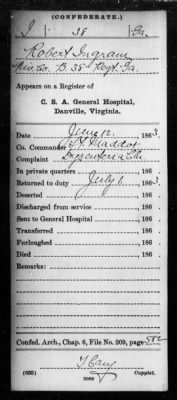 (CONFEDERATE.)
I 38 Ga.
Robert Ingram
Co. B. 38" Regt. Ga.
Appears on a Register of
C. S. A. General Hospital,
Danville, Virginia.
Date June 12, 1863
Co. Commander Maddox
Complaint Dysenteria
In private quarters , 186 .
Returned to duty July 1 , 1863.
Deserted , 186 .
Discharged from service , 186 .
Sent to General Hospital , 186 .
Transferred , 186 .
Furloughed , 186 .
Died , 186 .
Remarks:
Confed. Arch., Chap. 6, File No. 209, page 582
(635) Copyist.